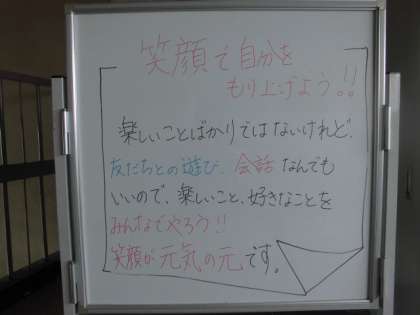 笑顔で自分を
もり上げよう!!
楽しいことばかりではないけれど、
友だちとの遊び、会話なんでも
いいので、楽しいこと、好きなことを
みんなでやろう!!
笑顔が元気の元です。